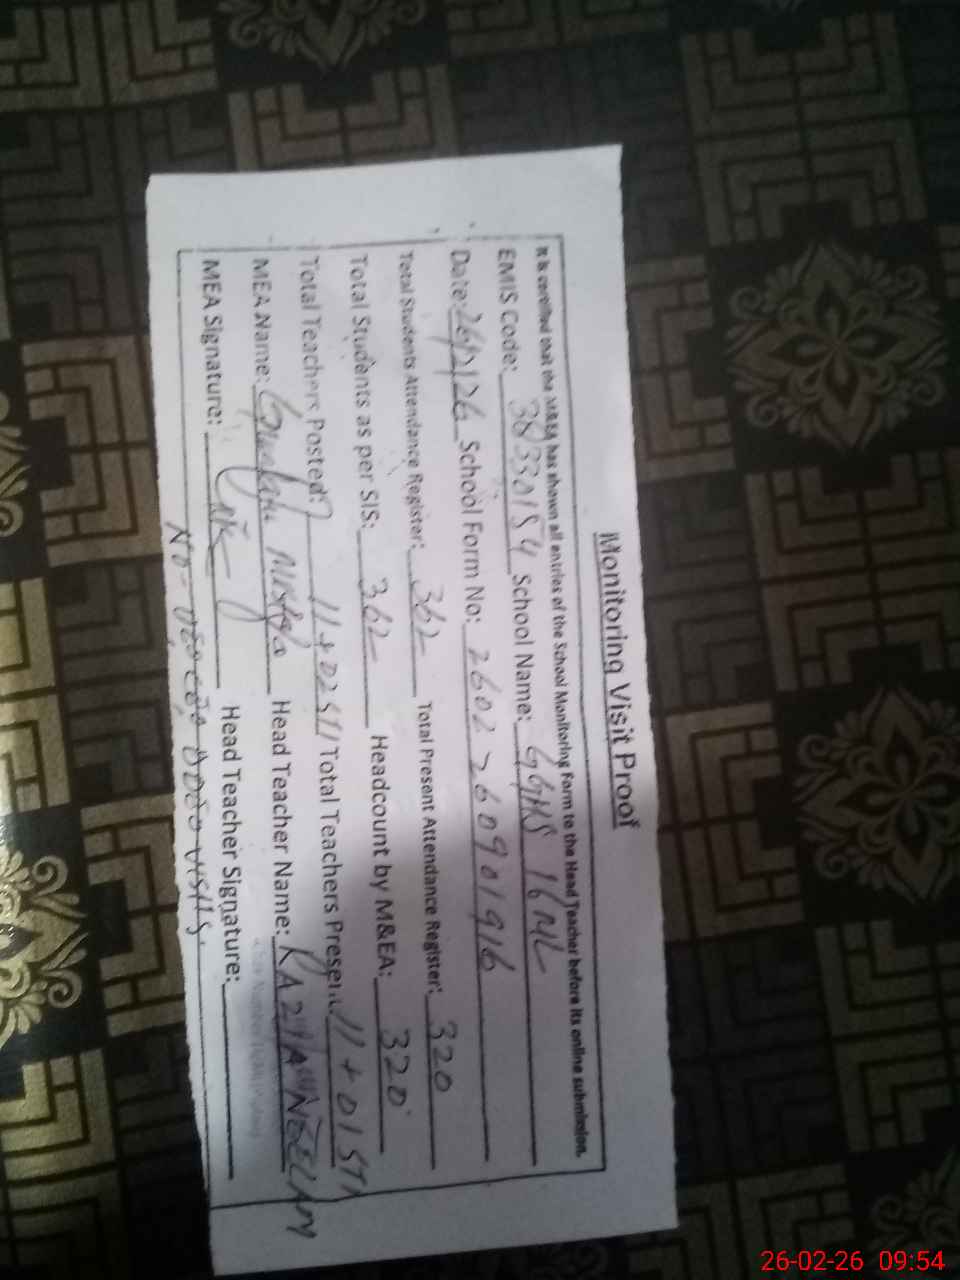 Monitoring Visit Proof
It is certified that the M&EA has shown all entries of the School Monitoring Form to the Head Teacher before its online submission.
EMIS Code: 38330154 School Name: GGHS 16 ML
Date: 26/2/26 School Form No: 2602260901916
Total Students Attendance Register: 362 Total Present Attendance Register: 320
Total Students as per SIS: 362 Headcount by M&EA: 320
Total Teachers Posted: 11+02STI Total Teachers Present: 11+01STI
MEA Name: Head Teacher Name: RAZIA NEELAM
MEA Signature: Head Teacher Signature:
26-02-26 09:54